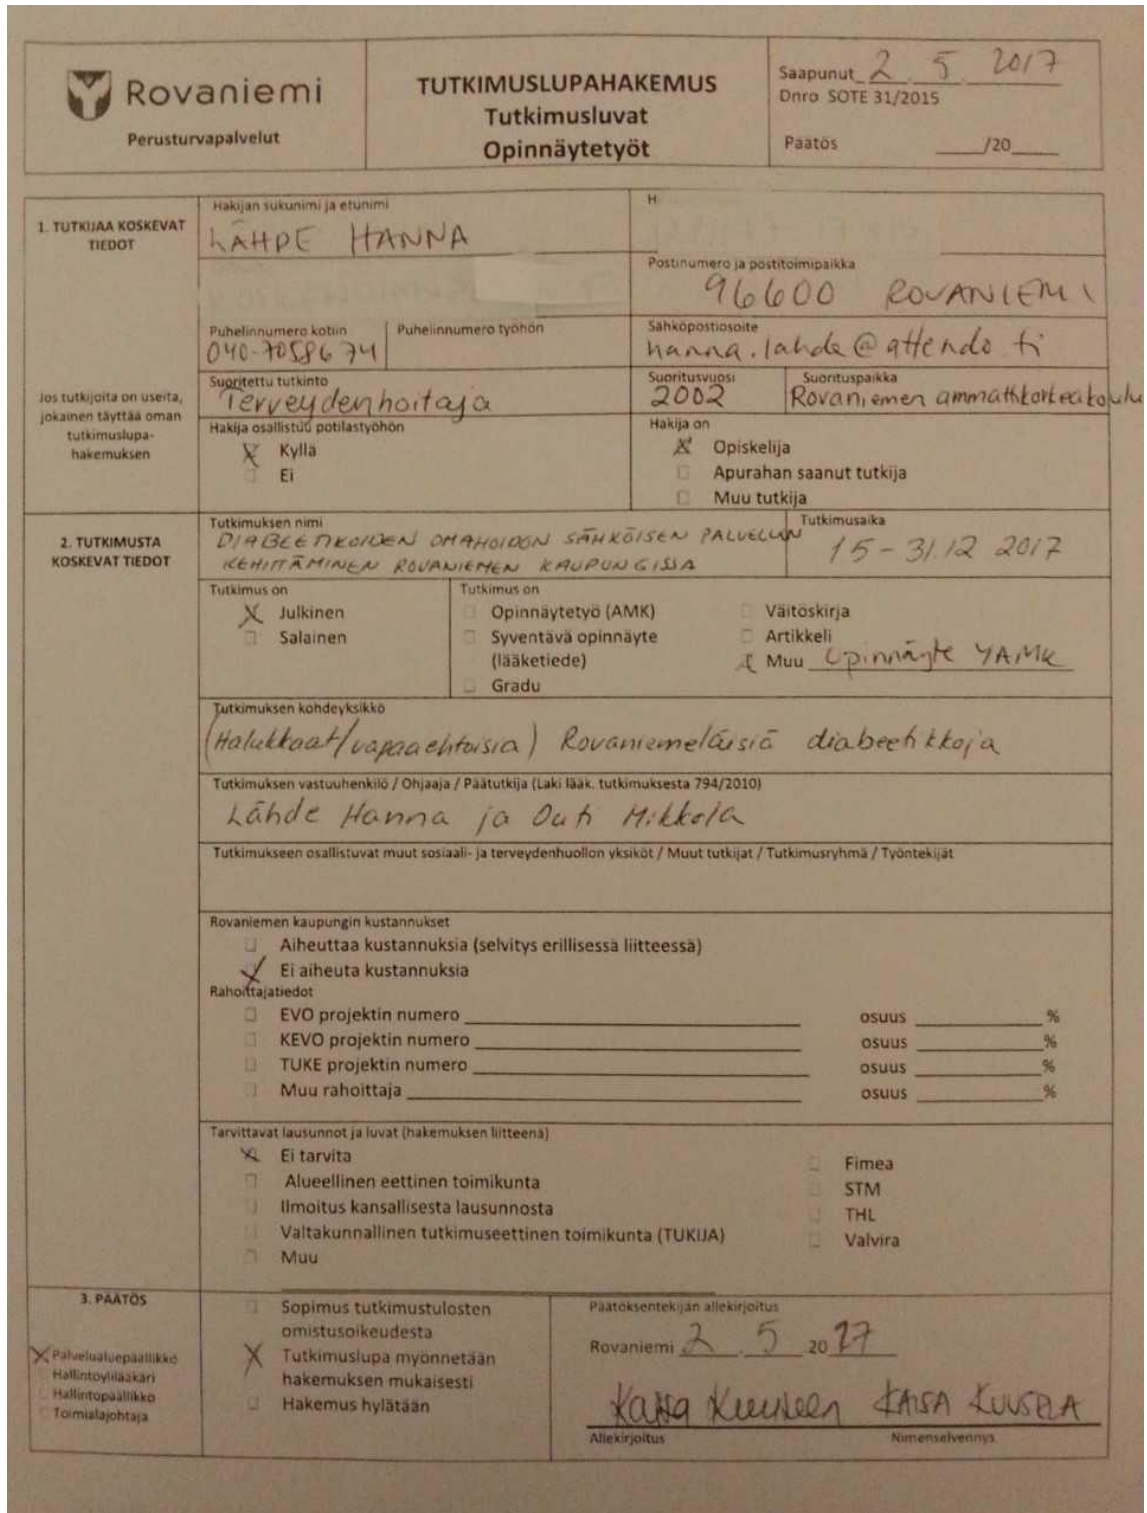 Rovaniemi
Perusturvapalvelut
TUTKIMUSLUPAHAKEMUS
Tutkimusluvat
Opinnäytetyöt
Saapunut 2 . 5 . 2017
Dnro SOTE 31/2015
Päätös ____/20____
1. TUTKIJAA KOSKEVAT
TIEDOT
Jos tutkijoita on useita,
jokainen täyttää oman
tutkimuslupa-
hakemuksen
Hakijan sukunimi ja etunimi
LÄHDE HANNA
H
Postinumero ja postitoimipaikka
96600 ROVANIEMI
Puhelinnumero kotiin
040-7058674
Puhelinnumero työhön
Sähköpostiosoite
hanna.lahde@attendo fi
Suoritettu tutkinto
Terveydenhoitaja
Suoritusvuosi
2002
Suorituspaikka
Rovaniemen ammattikorkeakoulu
Hakija osallistuu potilastyöhön
Kyllä
Ei
Hakija on
Opiskelija
Apurahan saanut tutkija
Muu tutkija
2. TUTKIMUSTA
KOSKEVAT TIEDOT
Tutkimuksen nimi
DIABEETIKOIDEN OMAHOIDON SÄHKÖISEN PALVELUN
KEHITTÄMINEN ROVANIEMEN KAUPUNGISSA
Tutkimusaika
15-31.12 2017
Tutkimus on
Julkinen
Salainen
Tutkimus on
Opinnäytetyö (AMK)
Syventävä opinnäyte
(lääketiede)
Gradu
Väitöskirja
Artikkeli
Muu Opinnäyte YAMK
Tutkimuksen kohdeyksikkö
(Halukkaat/vapaaehtoisia) Rovaniemeläisiä diabeetikkoja
Tutkimuksen vastuuhenkilö / Ohjaaja / Päätutkija (Laki lääk. tutkimuksesta 794/2010)
Lähde Hanna ja Outi Mikkola
Tutkimukseen osallistuvat muut sosiaali- ja terveydenhuollon yksiköt / Muut tutkijat / Tutkimusryhmä / Työntekijät
Rovaniemen kaupungin kustannukset
Aiheuttaa kustannuksia (selvitys erillisessä liitteessä)
Ei aiheuta kustannuksia
Rahoittajatiedot
EVO projektin numero ____ osuus ____%
KEVO projektin numero ____ osuus ____%
TUKE projektin numero ____ osuus ____%
Muu rahoittaja ____ osuus ____%
Tarvittavat lausunnot ja luvat (hakemuksen liitteenä)
Ei tarvita
Alueellinen eettinen toimikunta
Ilmoitus kansallisesta lausunnosta
Valtakunnallinen tutkimuseettinen toimikunta (TUKIJA)
Muu
Fimea
STM
THL
Valvira
3. PÄÄTÖS
Palvelualuepäällikkö
Hallintoylilääkäri
Hallintopäällikkö
Toimialajohtaja
Sopimus tutkimustulosten
omistusoikeudesta
Tutkimuslupa myönnetään
hakemuksen mukaisesti
Hakemus hylätään
Päätöksentekijän allekirjoitus
Rovaniemi 2 . 5 2017
KAISA KUUSELA
Allekirjoitus
Nimenselvennys